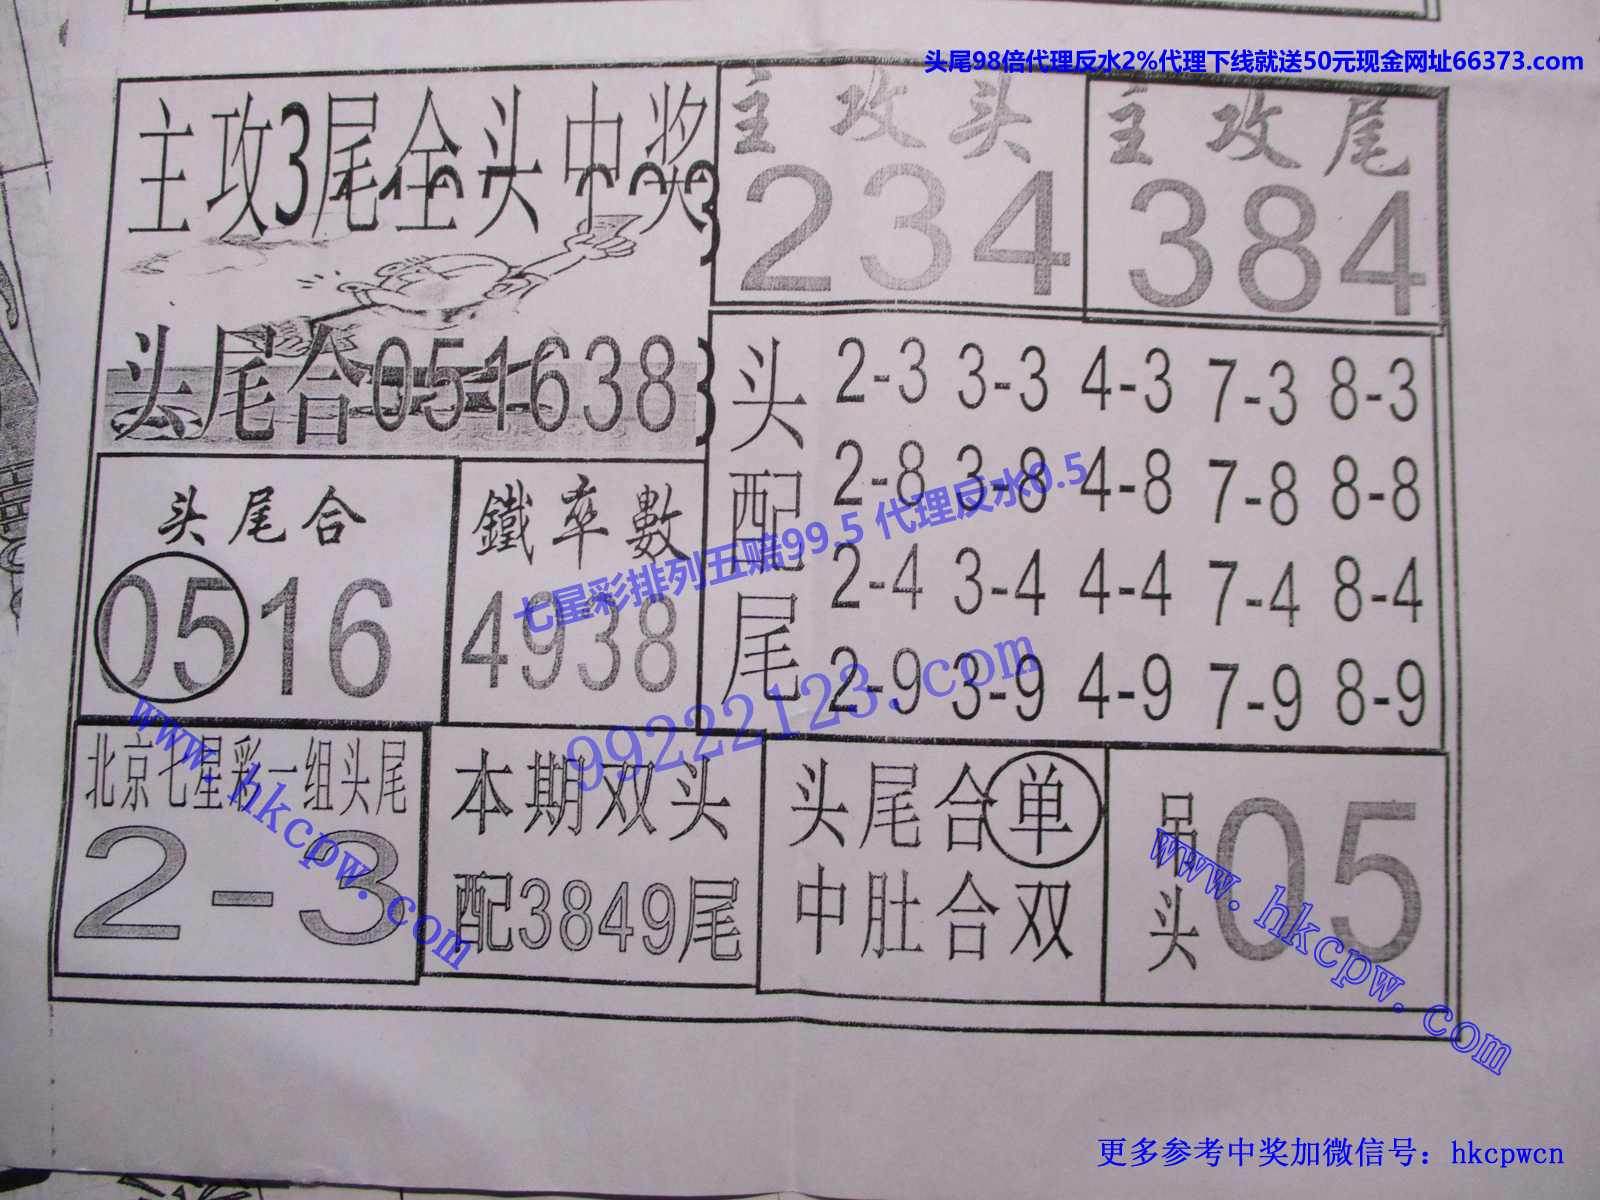 头尾98倍代理反水2%代理下线就送50元现金网址66373.com
主攻3尾全头中奖
头尾合051638
主攻头
234
主攻尾
384
头配尾
2-3 3-3 4-3 7-3 8-3
2-8 3-8 4-8 7-8 8-8
2-4 3-4 4-4 7-4 8-4
2-9 3-9 4-9 7-9 8-9
头尾合
0516
鐵率數
4938
七星彩排列五赔99.5 代理反水0.5
99222123.com
北京七星彩一组头尾
2-3
www.hkcpw.com
本期双头
配3849尾
头尾合单
中肚合双
吊头
05
www.hkcpw.com
更多参考中奖加微信号：hkcpwcn